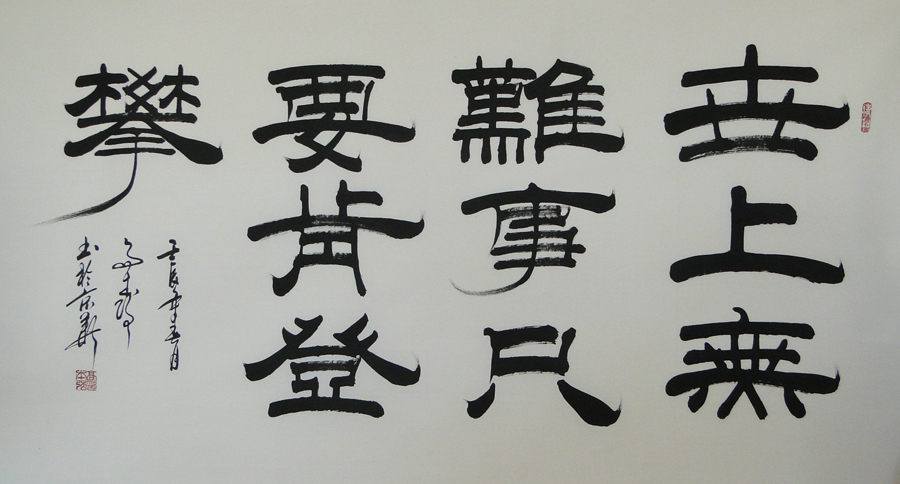 世上無
難事只
要肯登
攀
壬辰年五月
書於京郊